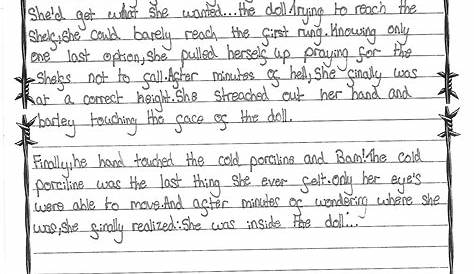 She'd get what she wanted...the doll.Trying to reach the
shelf,she could barely reach the first rung.Knowing only
one last option,she pulled herself up praying for the
shelfs not to fall.After minutes of hell,She finally was
at a correct height.She streached out her hand and
barley touching the face of the doll.
Finally,he hand touched the cold porciline and Bam!The cold
porciline was the last thing she ever felt.only her eye's
were able to move.And after minutes of wondering where she
was,she finally realized:She was inside the doll...